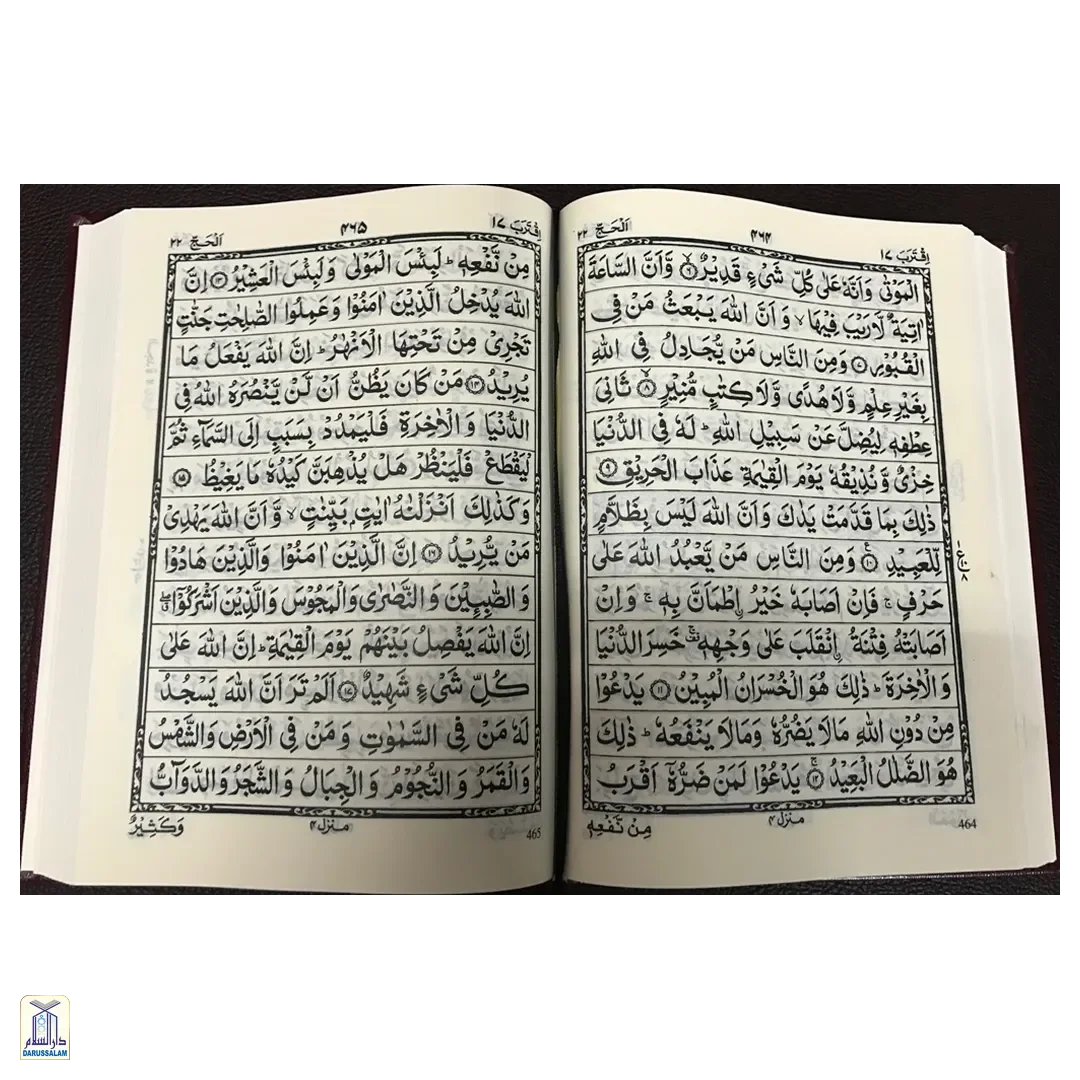 اِقْتَرَبَ ١٧
۴۶۴
اَلْحَجّ ٢٢
الْمَوْتٰى وَاَنَّهٗ عَلٰى كُلِّ شَىْءٍ قَدِيْرٌ ۙ﴿۶﴾ وَّاَنَّ السَّاعَةَ
اٰتِيَةٌ لَّا رَيْبَ فِيْهَا ۙ وَ اَنَّ اللّٰهَ يَبْعَثُ مَنْ فِى
الْقُبُوْرِ ﴿۷﴾ وَمِنَ النَّاسِ مَنْ يُّجَادِلُ فِى اللّٰهِ
بِغَيْرِ عِلْمٍ وَّلَا هُدًى وَّلَا كِتٰبٍ مُّنِيْرٍ ۙ﴿۸﴾ ثَانِىَ
عِطْفِهٖ لِيُضِلَّ عَنْ سَبِيْلِ اللّٰهِ ؕ لَهٗ فِى الدُّنْيَا
خِزْىٌ وَّنُذِيْقُهٗ يَوْمَ الْقِيٰمَةِ عَذَابَ الْحَرِيْقِ ﴿۹﴾
ذٰلِكَ بِمَا قَدَّمَتْ يَدٰكَ وَاَنَّ اللّٰهَ لَيْسَ بِظَلَّامٍ
لِّلْعَبِيْدِ ﴿۱۰﴾ وَمِنَ النَّاسِ مَنْ يَّعْبُدُ اللّٰهَ عَلٰى
حَرْفٍ ۚ فَاِنْ اَصَابَهٗ خَيْرُ ۨاطْمَاَنَّ بِهٖ ۚ وَاِنْ
اَصَابَتْهُ فِتْنَةُ ۨانْقَلَبَ عَلٰى وَجْهِهٖ ۚ خَسِرَ الدُّنْيَا
وَالْاٰخِرَةَ ؕ ذٰلِكَ هُوَ الْخُسْرَانُ الْمُبِيْنُ ﴿۱۱﴾ يَدْعُوْا
مِنْ دُوْنِ اللّٰهِ مَا لَا يَضُرُّهٗ وَمَا لَا يَنْفَعُهٗ ؕ ذٰلِكَ
هُوَ الضَّلٰلُ الْبَعِيْدُ ۚ﴿۱۲﴾ يَدْعُوْا لَمَنْ ضَرُّهٗۤ اَقْرَبُ
مِنْ نَّفْعِهٖ
منزل ۴
464
اِقْتَرَبَ ١٧
۴۶۵
اَلْحَجّ ٢٢
مِنْ نَّفْعِهٖ ؕ لَبِئْسَ الْمَوْلٰى وَلَبِئْسَ الْعَشِيْرُ ﴿۱۳﴾ اِنَّ
اللّٰهَ يُدْخِلُ الَّذِيْنَ اٰمَنُوْا وَعَمِلُوا الصّٰلِحٰتِ جَنّٰتٍ
تَجْرِىْ مِنْ تَحْتِهَا الْاَنْهٰرُ ؕ اِنَّ اللّٰهَ يَفْعَلُ مَا
يُرِيْدُ ﴿۱۴﴾ مَنْ كَانَ يَظُنُّ اَنْ لَّنْ يَّنْصُرَهُ اللّٰهُ فِى
الدُّنْيَا وَالْاٰخِرَةِ فَلْيَمْدُدْ بِسَبَبٍ اِلَى السَّمَآءِ ثُمَّ
لْيَقْطَعْ فَلْيَنْظُرْ هَلْ يُذْهِبَنَّ كَيْدُهٗ مَا يَغِيْظُ ﴿۱۵﴾
وَكَذٰلِكَ اَنْزَلْنٰهُ اٰيٰتٍۭ بَيِّنٰتٍ ۙ وَّاَنَّ اللّٰهَ يَهْدِىْ
مَنْ يُّرِيْدُ ﴿۱۶﴾ اِنَّ الَّذِيْنَ اٰمَنُوْا وَالَّذِيْنَ هَادُوْا
وَالصّٰبِـِٕيْنَ وَالنَّصٰرٰى وَالْمَجُوْسَ وَالَّذِيْنَ اَشْرَكُوْۤا ۖۗ
اِنَّ اللّٰهَ يَفْصِلُ بَيْنَهُمْ يَوْمَ الْقِيٰمَةِ ؕ اِنَّ اللّٰهَ عَلٰى
كُلِّ شَىْءٍ شَهِيْدٌ ﴿۱۷﴾ اَلَمْ تَرَ اَنَّ اللّٰهَ يَسْجُدُ
لَهٗ مَنْ فِى السَّمٰوٰتِ وَمَنْ فِى الْاَرْضِ وَالشَّمْسُ
وَالْقَمَرُ وَالنُّجُوْمُ وَالْجِبَالُ وَالشَّجَرُ وَالدَّوَآبُّ
وَكَثِيْرٌ
منزل ۴
465
دار السلام
DARUSSALAM